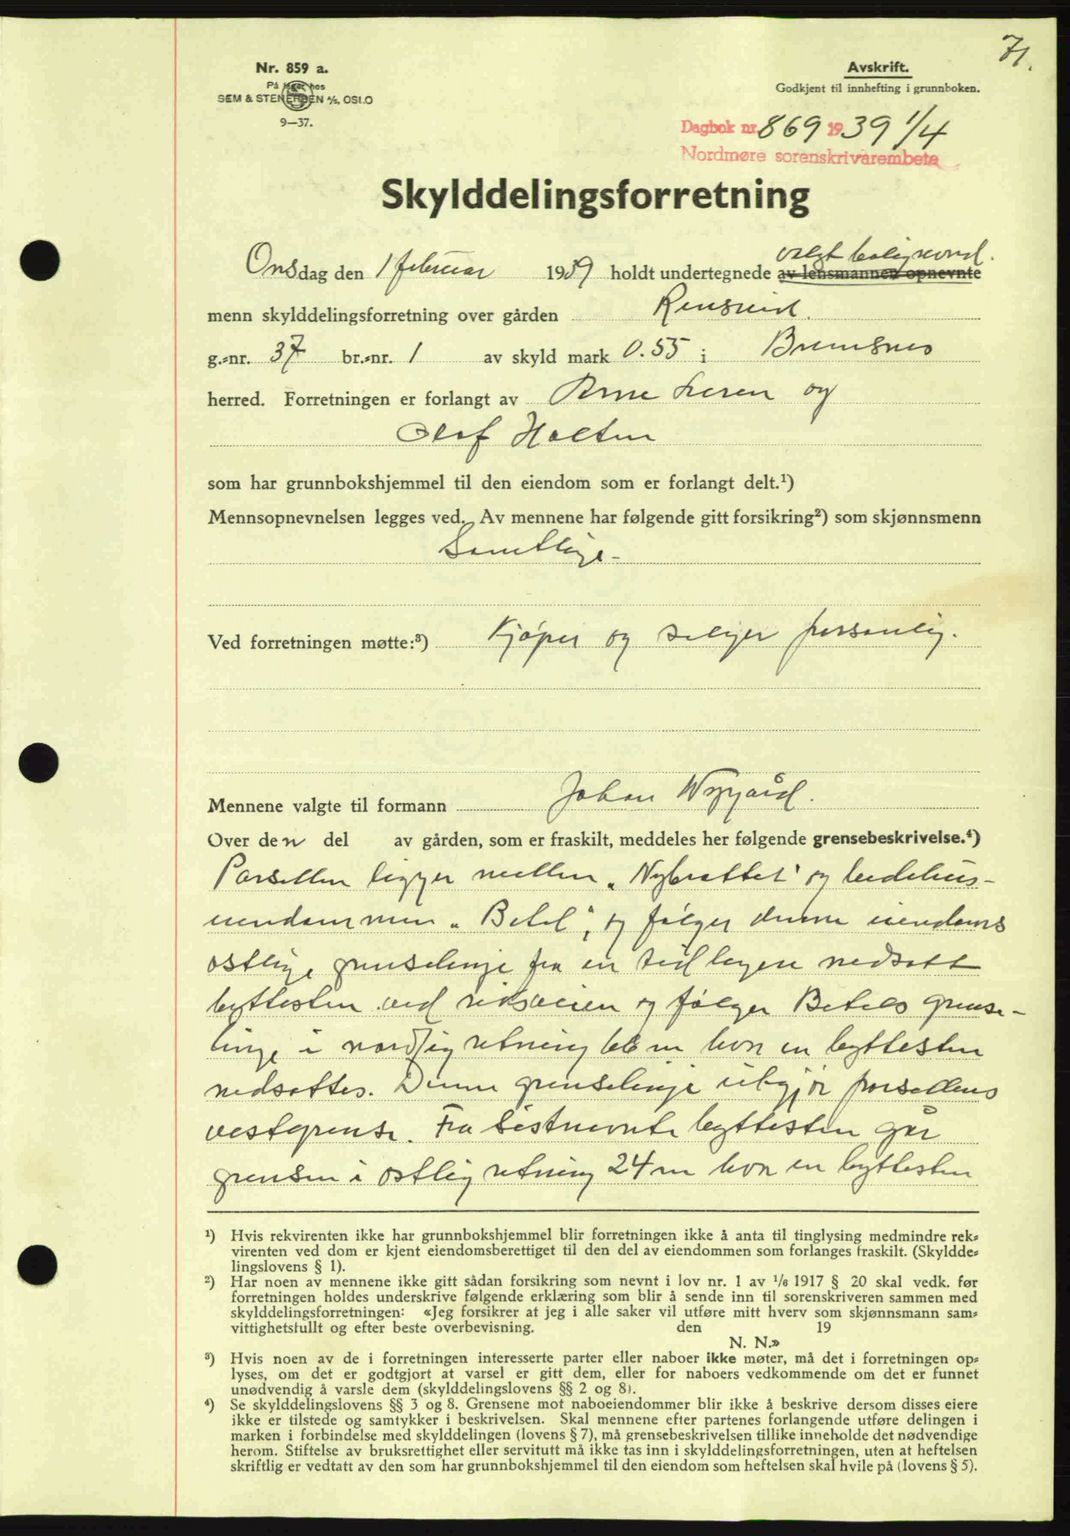 71.
Nr. 859 a.
På lager hos
SEM & STENERSEN A/S, OSLO
9—37.
Avskrift.
Godkjent til innhefting i grunnboken.
Dagbok nr. 869 1939 1/4
Nordmøre sorenskrivarembete
Skylddelingsforretning
valgt
Onsdag den 1 februar 1939 holdt undertegnede av lensmannen opnevnte
menn skylddelingsforretning over gården Rensvik.
g.-nr. 37 br.-nr. 1 av skyld mark 0.55 i Bremsnes
herred. Forretningen er forlangt av Arne og
Olaf Holten
som har grunnbokshjemmel til den eiendom som er forlangt delt.¹)
Mennsopnevnelsen legges ved. Av mennene har følgende gitt forsikring²) som skjønnsmenn
Samtlige-
Ved forretningen møtte:³) Kjøper og selger personlig.
Mennene valgte til formann Johan Nygård.
Over den del av gården, som er fraskilt, meddeles her følgende grensebeskrivelse.⁴)
Parsellen ligger mellem „Nybrottet" og bedehus-
eiendommen „Betel", og følger denne eiendoms
østlige grenselinje fra en tidligere nedsatt
byttesten ved riksveien og følger Betels grense-
linje i nordlig retning 66 m hvor en byttesten
nedsattes. Denne grenselinje utgjør parsellens
vestgrense. Fra sistnevnte byttesten går
grensen i østlig retning 24 m hvor en byttesten
¹) Hvis rekvirenten ikke har grunnbokshjemmel blir forretningen ikke å anta til tinglysing medmindre rek-
virenten ved dom er kjent eiendomsberettiget til den del av eiendommen som forlanges fraskilt. (Skyldde-
lingslovens § 1).
²) Har noen av mennene ikke gitt sådan forsikring som nevnt i lov nr. 1 av 1/6 1917 § 20 skal vedk. før
forretningen holdes underskrive følgende erklæring som blir å sende inn til sorenskriveren sammen med
skylddelingsforretningen: «Jeg forsikrer at jeg i alle saker vil utføre mitt hverv som skjønnsmann sam-
vittighetsfullt og efter beste overbevisning. den 19
N. N.»
³) Hvis noen av de i forretningen interesserte parter eller naboer ikke møter, må det i forretningen op-
lyses, om det er godtgjort at varsel er gitt dem, eller for naboers vedkommende om det er funnet
unødvendig å varsle dem (skylddelingslovens §§ 2 og 8).
⁴) Se skylddelingslovens §§ 3 og 8. Grensene mot naboeiendommer blir ikke å beskrive dersom disses eiere
ikke er tilstede og samtykker i beskrivelsen. Skal mennene efter partenes forlangende utføre delingen i
marken i forbindelse med skylddelingen (lovens § 7), må grensebeskrivelsen tillike inneholde det nødvendige
herom. Stiftelse av bruksrettighet eller servitutt må ikke tas inn i skylddelingsforretningen, uten at heftelsen
skriftlig er vedtatt av den som har grunnbokshjemmel til den eiendom som heftelsen skal hvile på (lovens § 5).